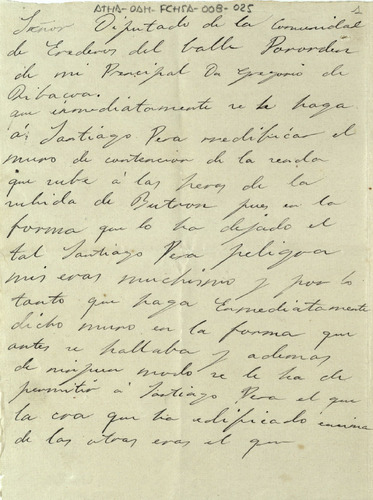 ATHA-DAH-FCHSA-008-025
Señor Diputado de la Comunidad
de Erederos del balle Pororden
de mi Principal Dn Gregorio de
Ribacoa.
que inmediatamente se le haga
á Santiago Pera medificar el
muro de contencion de la
que sube á las heras de la
subida de Butron pues en la
forma que lo ha dejado el
tal Santiago Pera peligra
mis eras muchismo y por lo
tanto que haga Enmediátamente
dicho muro en la forma que
antes se hallaba y ademas
de ningun modo se le ha de
permitir á Santiago Pera el que
la era que ha edificado encima
de las otras eras el que